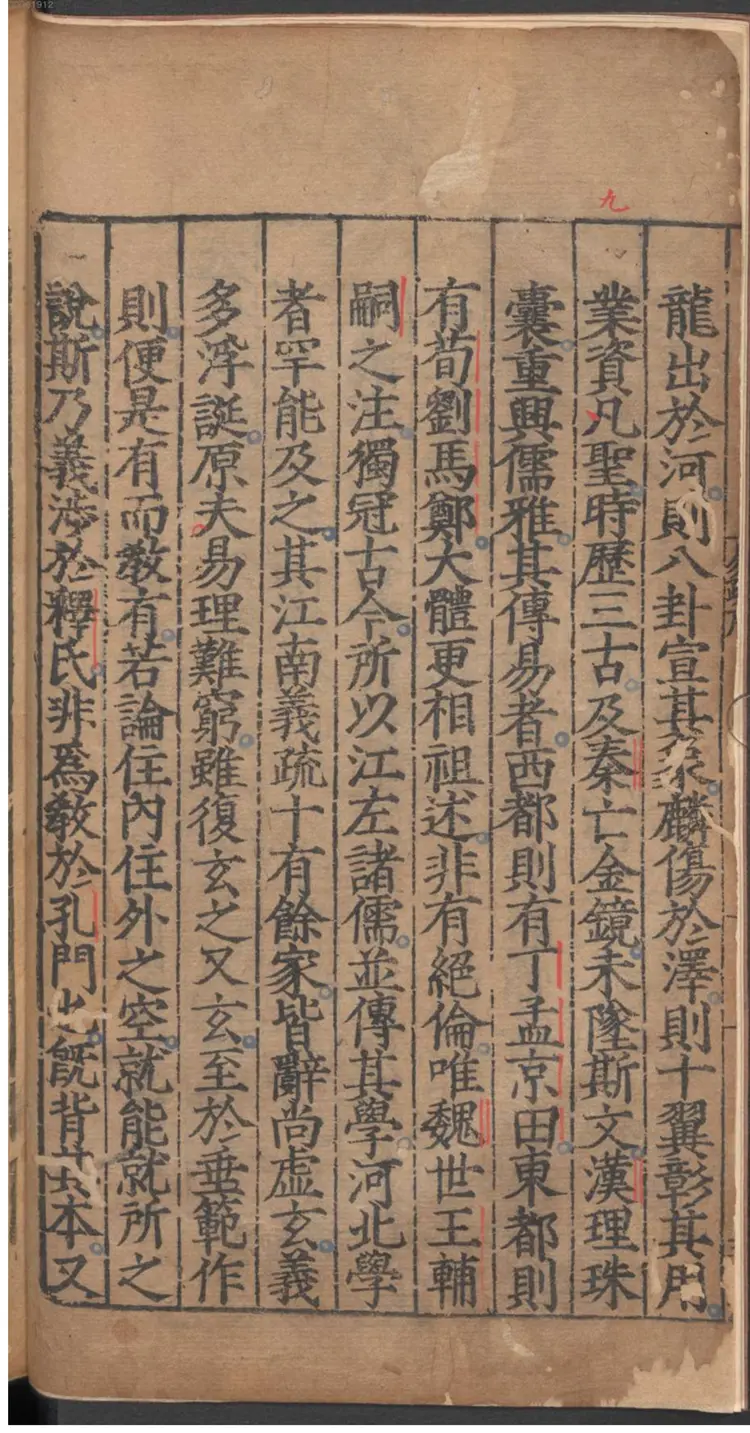 九
龍出於河則八卦宣其象麟傷於澤則十翼彰其用
業資凡聖時歷三古及秦亡金鏡未墜斯文漢理珠
囊重興儒雅其傳易者西都則有丁孟京田東都則
有荀劉馬鄭大體更相祖述非有絕倫唯魏世王輔
嗣之注獨冠古今所以江左諸儒並傳其學河北學
者罕能及之其江南義疏十有餘家皆辭尚虛玄義
多浮誕原夫易理難窮雖復玄之又玄至於垂範作
則便是有而教有若論住內住外之空就能就所之
說斯乃義涉於釋氏非為教於孔門也既背其本又